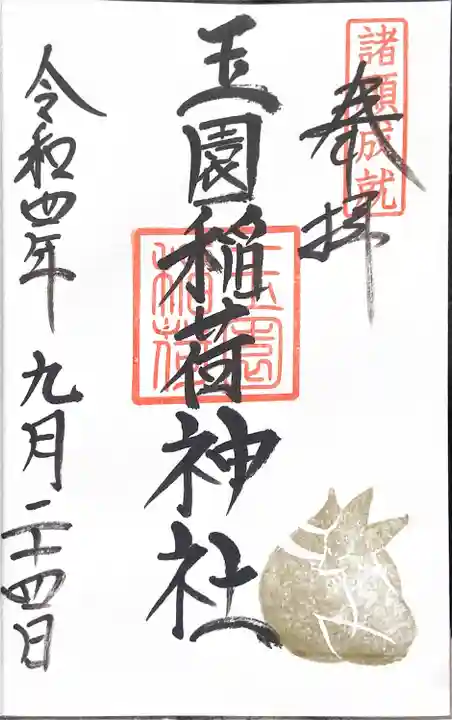 諸願成就
奉拝
玉園稲荷神社
玉園
稲荷
令和四年 九月二十四日